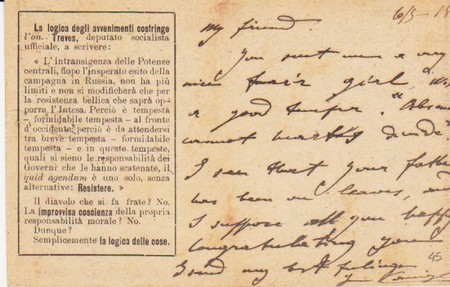 La logica degli avvenimenti costringe
l'on. Treves, deputato socialista
ufficiale, a scrivere:
« L'intransigenza delle Potenze
centrali, dopo l'insperato esito della
campagna in Russia, non ha più
limiti e non si modificherà che per
la resistenza bellica che saprà op-
porre l'Intesa. Perciò è tempesta
- formidabile tempesta - al fronte
d'occidente, perciò è da attendersi
tra breve tempesta - formidabile
tempesta - e in queste tempeste,
quali si sieno le responsabilità dei
Governi che le hanno scatenate, il
quid agendum è uno solo, senza
alternative: Resistere. »
Il diavolo che si fa frate? No.
La improvvisa coscienza della propria
responsabilità morale? No.
Dunque?
Semplicemente la logica delle cose.
6/5-18
My friend.
You sent me a very
nice fair girl,
a good temper.
cannot
I seen that your father
has been on leaves, and
I suppose all you happy
Congratulating you
I send my best feelings
45